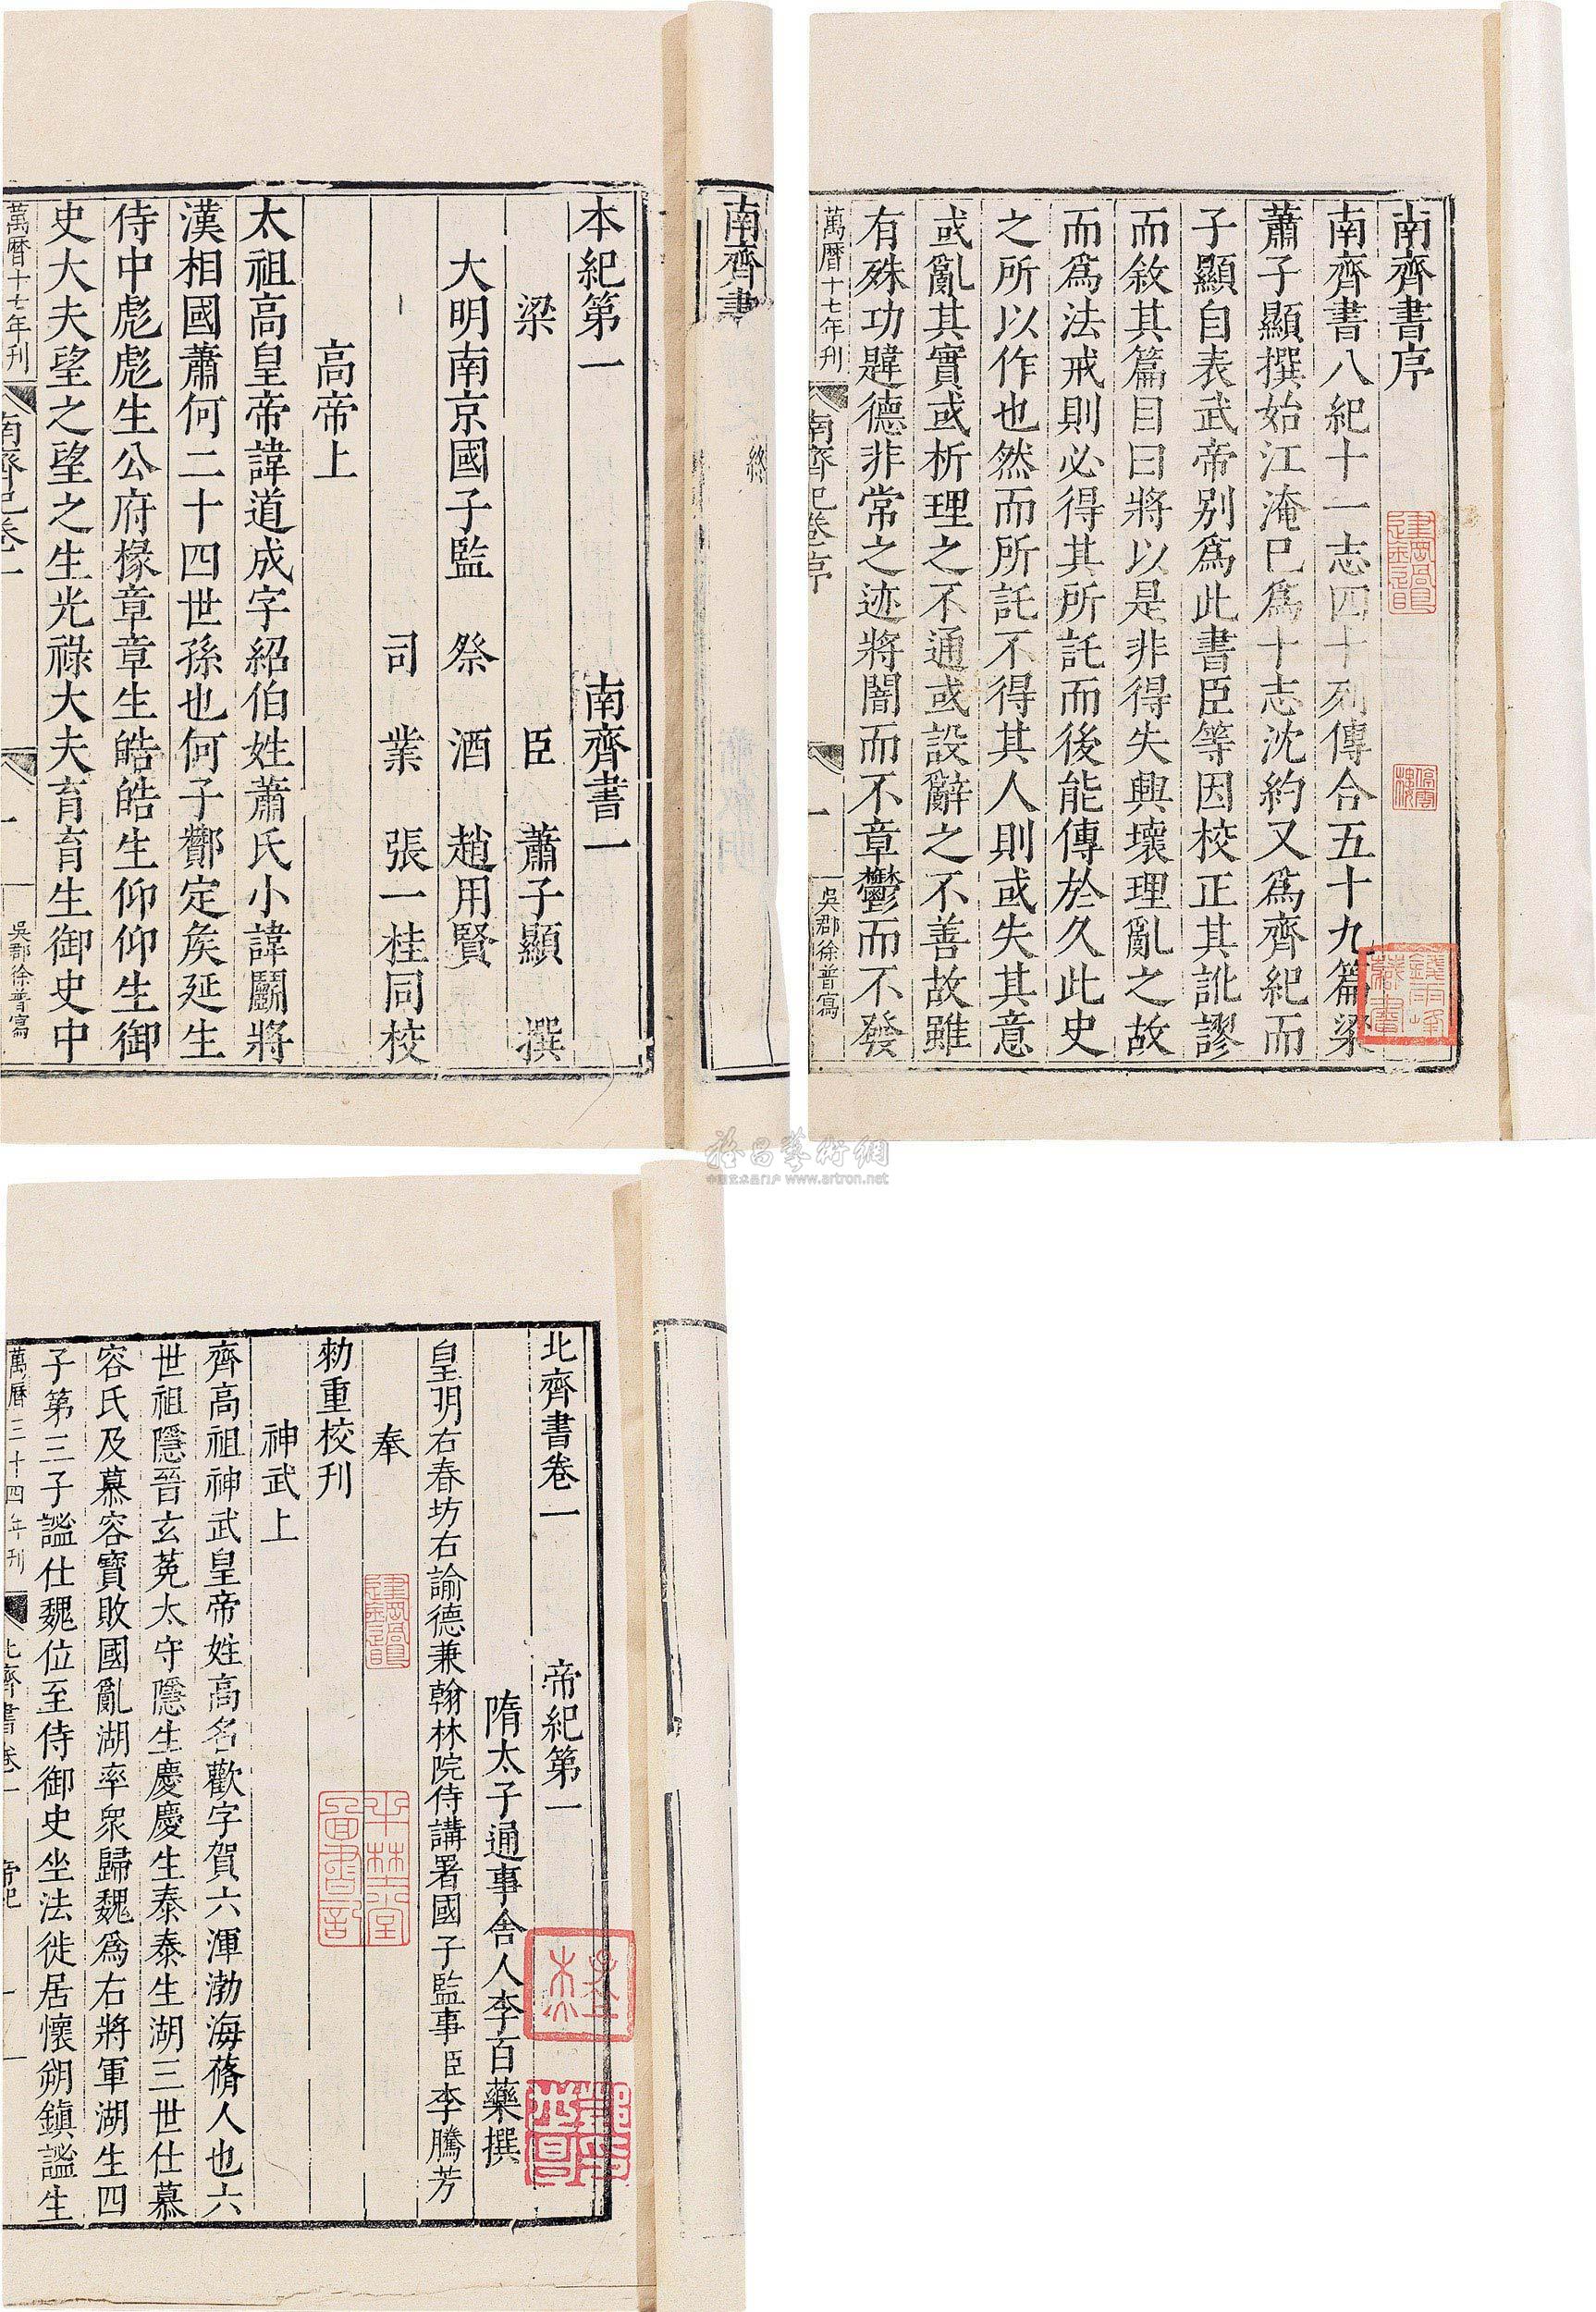 南齊書序
南齊書八紀十一志四十列傳合五十九篇梁
蕭子顯撰始江淹已爲十志沈約又爲齊紀而
子顯自表武帝别爲此書臣等因校正其訛謬
而敘其篇目曰將以是非得失興壞理亂之故
而爲法戒則必得其所託而後能傳於久此史
之所以作也然而所託不得其人則或失其意
或亂其實或析理之不通或設辭之不善故雖
有殊功韙德非常之迹將闇而不章鬱而不發
萬曆十七年刊
南齊紀卷序
一
吳郡徐普寫
錢雨峰藏書
南齊書
終
本紀第一 南齊書一
梁 臣 蕭子顯 撰
大明南京國子監 祭 酒 趙用賢
司 業 張一桂同校
高帝上
太祖高皇帝諱道成字紹伯姓蕭氏小諱鬭將
漢相國蕭何二十四世孫也何子酇定矦延生
侍中彪彪生公府掾章章生皓皓生仰仰生御
史大夫望之望之生光祿大夫育育生御史中
萬曆十七年刊
南齊紀卷一
一
吳郡徐普寫
www.artron.net
北齊書卷一 帝紀第一
隋太子通事舍人李百藥撰
皇明右春坊右諭德兼翰林院侍講署國子監事臣李騰芳
奉
勑重校刊
神武上
齊高祖神武皇帝姓高名歡字賀六渾渤海蓨人也六
世祖隱晉玄菟太守隱生慶慶生泰泰生湖三世仕慕
容氏及慕容寶敗國亂湖率衆歸魏爲右將軍湖生四
子第三子謐仕魏位至侍御史坐法徙居懷朔鎮謐生
萬曆三十四年刊
北齊書卷一
帝紀
一